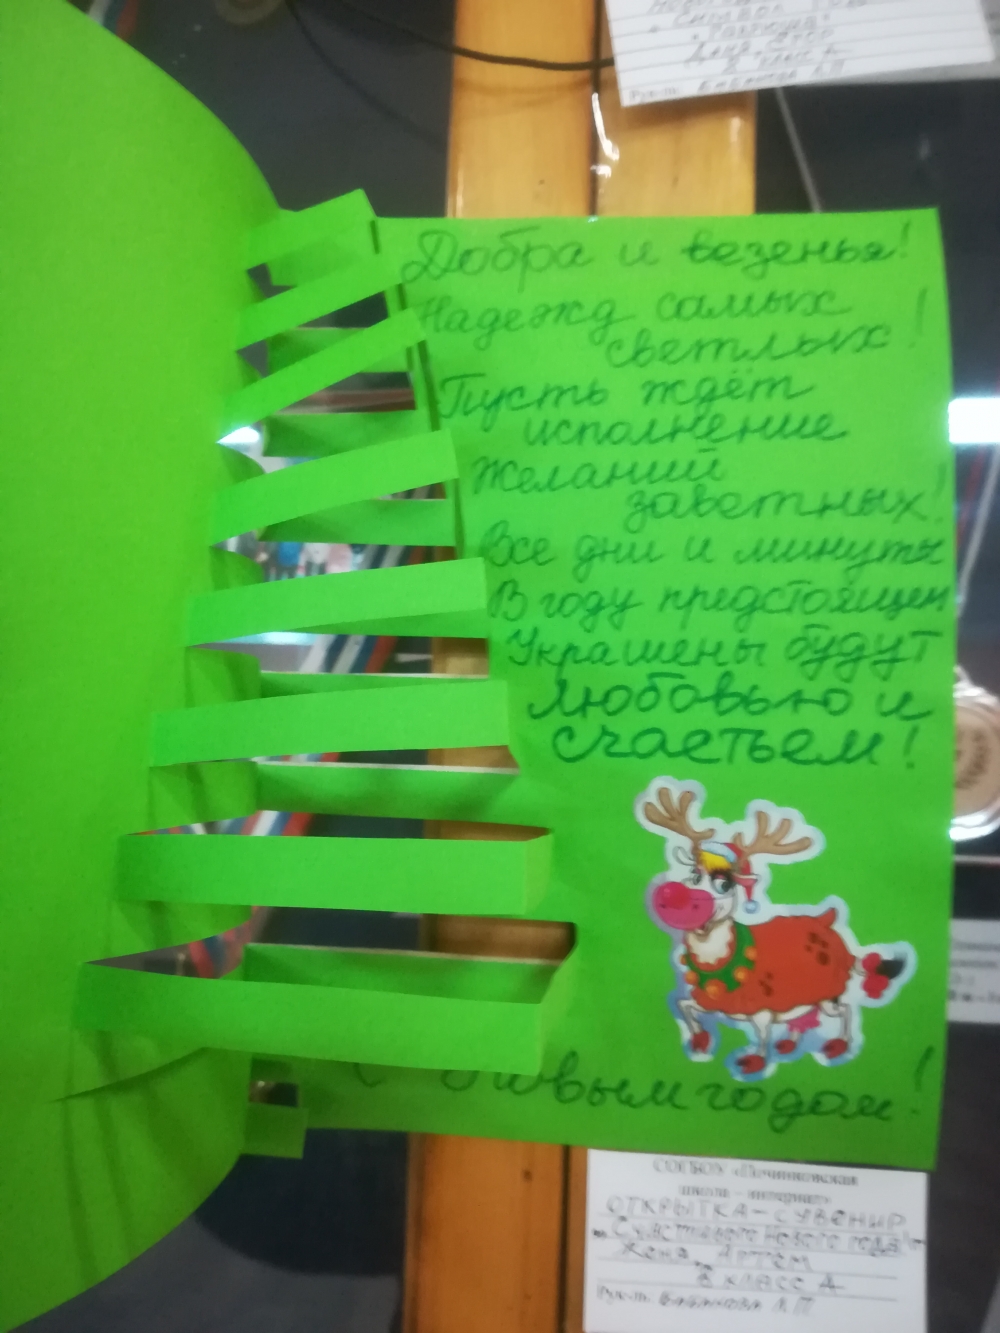 Символ года
Дана, Егор
Добра и везенья!
Надежд самых
светлых!
Пусть ждёт
исполнение
Желаний
заветных!
Все дни и минуты
В году предстоящем
Украшены будут
Любовью и
счастьем!
С Новым годом!
СОГБОУ «Починковская
школа – интернат»
ОТКРЫТКА-СУВЕНИР
Счастливого Нового года
Женя, Артём
8 КЛАСС Д
Рук-ль: